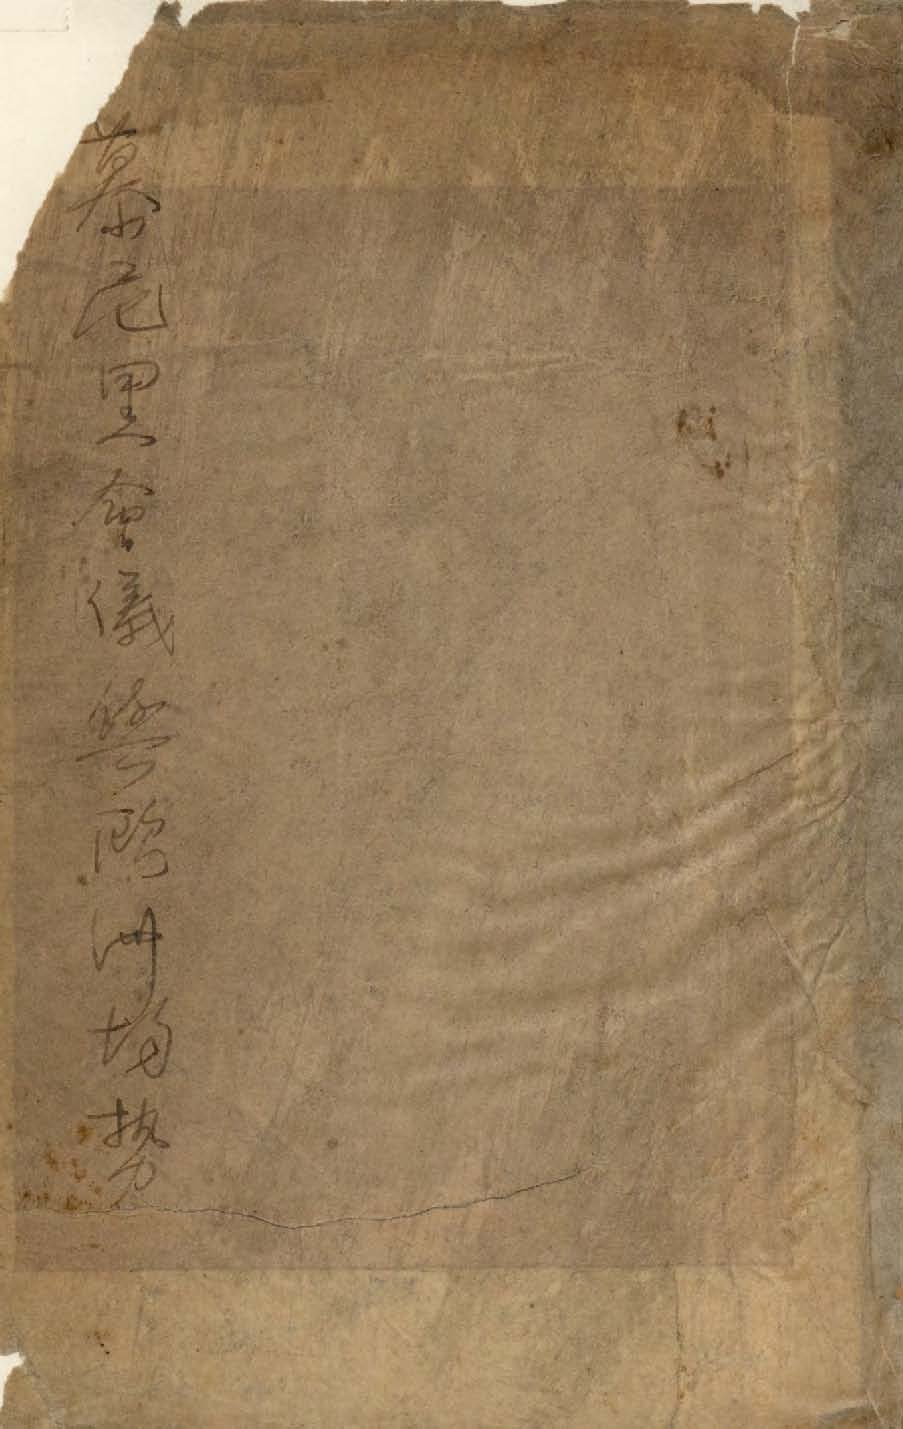 慕尼黑會儀與歐洲場勢